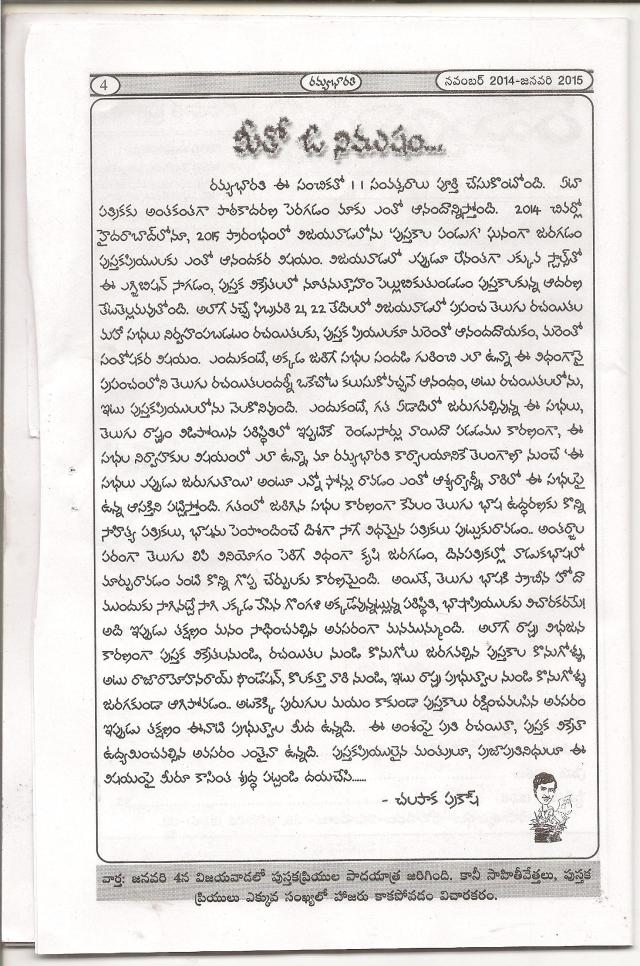 4
రమ్యభారతి
నవంబర్ 2014-జనవరి 2015
మీతో ఓ నిముషం...
రమ్యభారతి ఈ సంచికతో 11 సంవత్సరాలు పూర్తి చేసుకొంటోంది. ఏటా
పత్రికకు అంతకంతగా పాఠకాదరణ పెరగడం మాకు ఎంతో ఆనందాన్నిస్తోంది. 2014 చివర్లో
హైదరాబాద్‌లోనూ, 2015 ప్రారంభంలో విజయవాడలోను 'పుస్తకాల పండుగ' ఘనంగా జరగడం
పుస్తకప్రియులకు ఎంతో ఆనందకర విషయం. విజయవాడలో ఎప్పుడూ లేనంతగా ఎక్కువ స్టాల్స్‌తో
ఈ ఎగ్జిబిషన్ సాగడం, పుస్తక విక్రేతలలో నూతనుత్సాహం పెల్లుబికుతుండడం పుస్తకాలకున్న ఆదరణ
తేటతెల్లమవుతోంది. అలాగే వచ్చే ఫిబ్రవరి 21, 22 తేదీలలో విజయవాడలో ప్రపంచ తెలుగు రచయితల
మహా సభలు నిర్వహింపబడటం రచయితలకు, పుస్తక ప్రియులకూ మరెంతో ఆనందదాయకం, మరెంతో
సంతోషకర విషయం. ఎందుకంటే, అక్కడ జరిగే సభల సందడి గురించి ఎలా ఉన్నా ఈ విధంగానై
ప్రపంచంలోని తెలుగు రచయితలందర్నీ ఒకేచోట కలుసుకోవచ్చనే ఆనందం, అటు రచయితలలోను,
ఇటు పుస్తకప్రియులలోను నెలకొనివుంది. ఎందుకంటే, గత ఏడాదిలో జరుగవల్సివున్న ఈ సభలు,
తెలుగు రాష్ట్రం విడిపోయిన పరిస్థితిలో ఇప్పటికే రెండుసార్లు వాయిదా పడడము కారణంగా, ఈ
సభల నిర్వాహకుల విషయంలో ఎలా ఉన్నా, మా రమ్యభారతి కార్యాలయానికే తెలంగాణా నుంచే 'ఈ
సభలు ఎప్పుడు జరుగుతాయి' అంటూ ఎన్నో ఫోన్లు రావడం ఎంతో ఆశ్చర్యాన్నీ, వారిలో ఈ సభలపై
ఉన్న ఆసక్తిని పట్టిస్తోంది. గతంలో జరిగిన సభల కారణంగా కేవలం తెలుగు భాష ఉద్ధరణకు కొన్ని
సాహిత్య పత్రికలు, భాషను పెంపొందించే దిశగా సాగే విధమైన పత్రికలు పుట్టుకురావడం.. అంతర్జాల
పరంగా తెలుగు లిపి వినియోగం పెరిగే విధంగా కృషి జరగడం, దినపత్రికల్లో వాడుకభాషలో
మార్పురావడం వంటి కొన్ని గొప్ప చేర్పులకు కారణమైంది. అయితే, తెలుగు భాషకి ప్రాచీన హోదా
ముందుకు సాగినట్టే సాగి ఎక్కడ వేసిన గొంగళి అక్కడేవున్నట్టున్న పరిస్థితి, భాషాప్రియులకు విచారకరమే!
అది ఇప్పుడు తక్షణం మనం సాధించవల్సిన అవసరంగా మనముందుంది. అలాగే రాష్ట్ర విభజన
కారణంగా పుస్తక విక్రేతలనుండి, రచయితల నుండి కొనుగోలు జరగవల్సిన పుస్తకాల కొనుగోళ్ళు,
అటు రాజారామోహనరాయ్ ఫౌండేషన్, కొలకత్తా వారి నుండి, ఇటు రాష్ట్ర ప్రభుత్వాల నుండి కొనుగోళ్ళు
జరగకుండా ఆగిపోవడం.. అటకెక్కి పురుగుల మయం కాకుండా పుస్తకాలు రక్షించవలసిన అవసరం
ఇప్పుడు తక్షణం ఈనాటి ప్రభుత్వాల మీద ఉన్నది. ఈ అంశంపై ప్రతి రచయితా, పుస్తక విక్రేతా
ఉద్యమించవల్సిన అవసరం ఎంతైనా ఉన్నది. పుస్తకప్రియులైన మంత్రులూ, ప్రజాప్రతినిధులూ ఈ
విషయంపై మీరూ కాసింత శ్రద్ధ పట్టండి దయచేసి......
- చలపాక ప్రకాష్
వార్త: జనవరి 4న విజయవాడలో పుస్తకప్రియుల పాదయాత్ర జరిగింది. కానీ సాహితీవేత్తలు, పుస్తక
ప్రియులు ఎక్కువ సంఖ్యలో హాజరు కాకపోవడం విచారకరం.